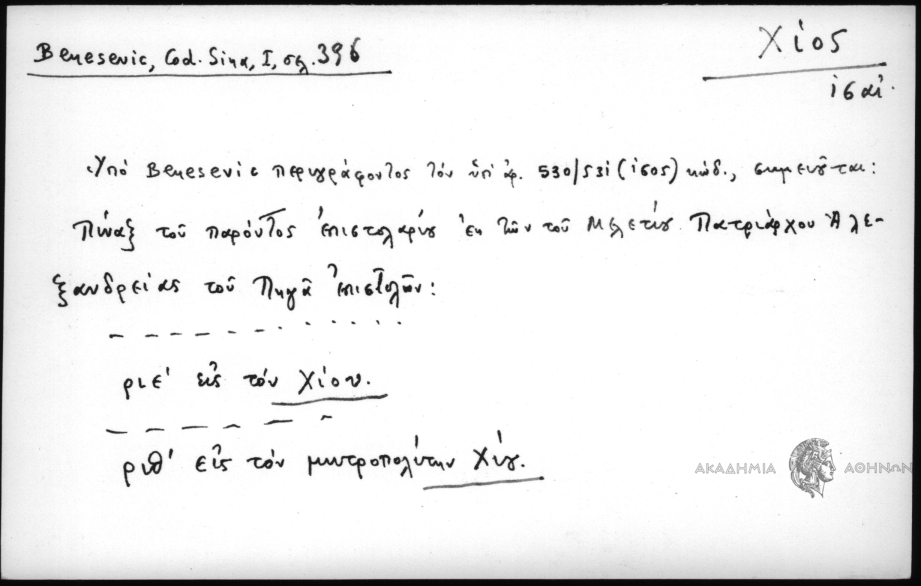 Benesevic, Cod. Sina, I, σελ. 396
Χίος
ις αἰ.
Ὑπό Benesevic περιγράφοντος τόν ὑπ' ἀρ. 530/531 (1605) κώδ., σημειοῦται:
Πίναξ τοῦ παρόντος ἐπιστολαρίου ἐκ τῶν τοῦ Μελετίου Πατριάρχου Ἀλε-
ξανδρείας τοῦ Πηγᾶ ἐπιστολῶν:
ριε' εἰς τόν Χίου.
ριθ' εἰς τόν μητροπολίτην Χίου.
ΑΚΑΔΗΜΙΑ ΑΘΗΝΩΝ